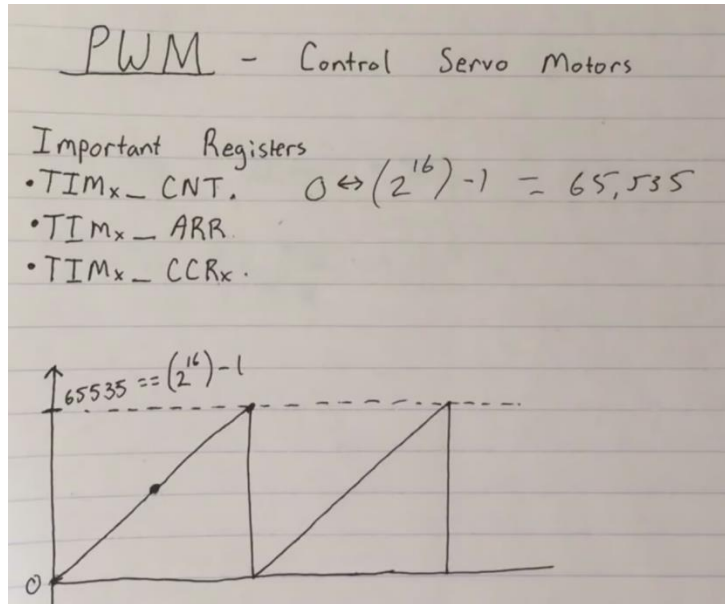 PWM - Control Servo Motors
Important Registers
•TIMx_ CNT. 0 ↔ (2^16) -1 = 65,535
•TIMx_ ARR.
•TIMx_ CCRx.
65535 == (2^16) -1
0